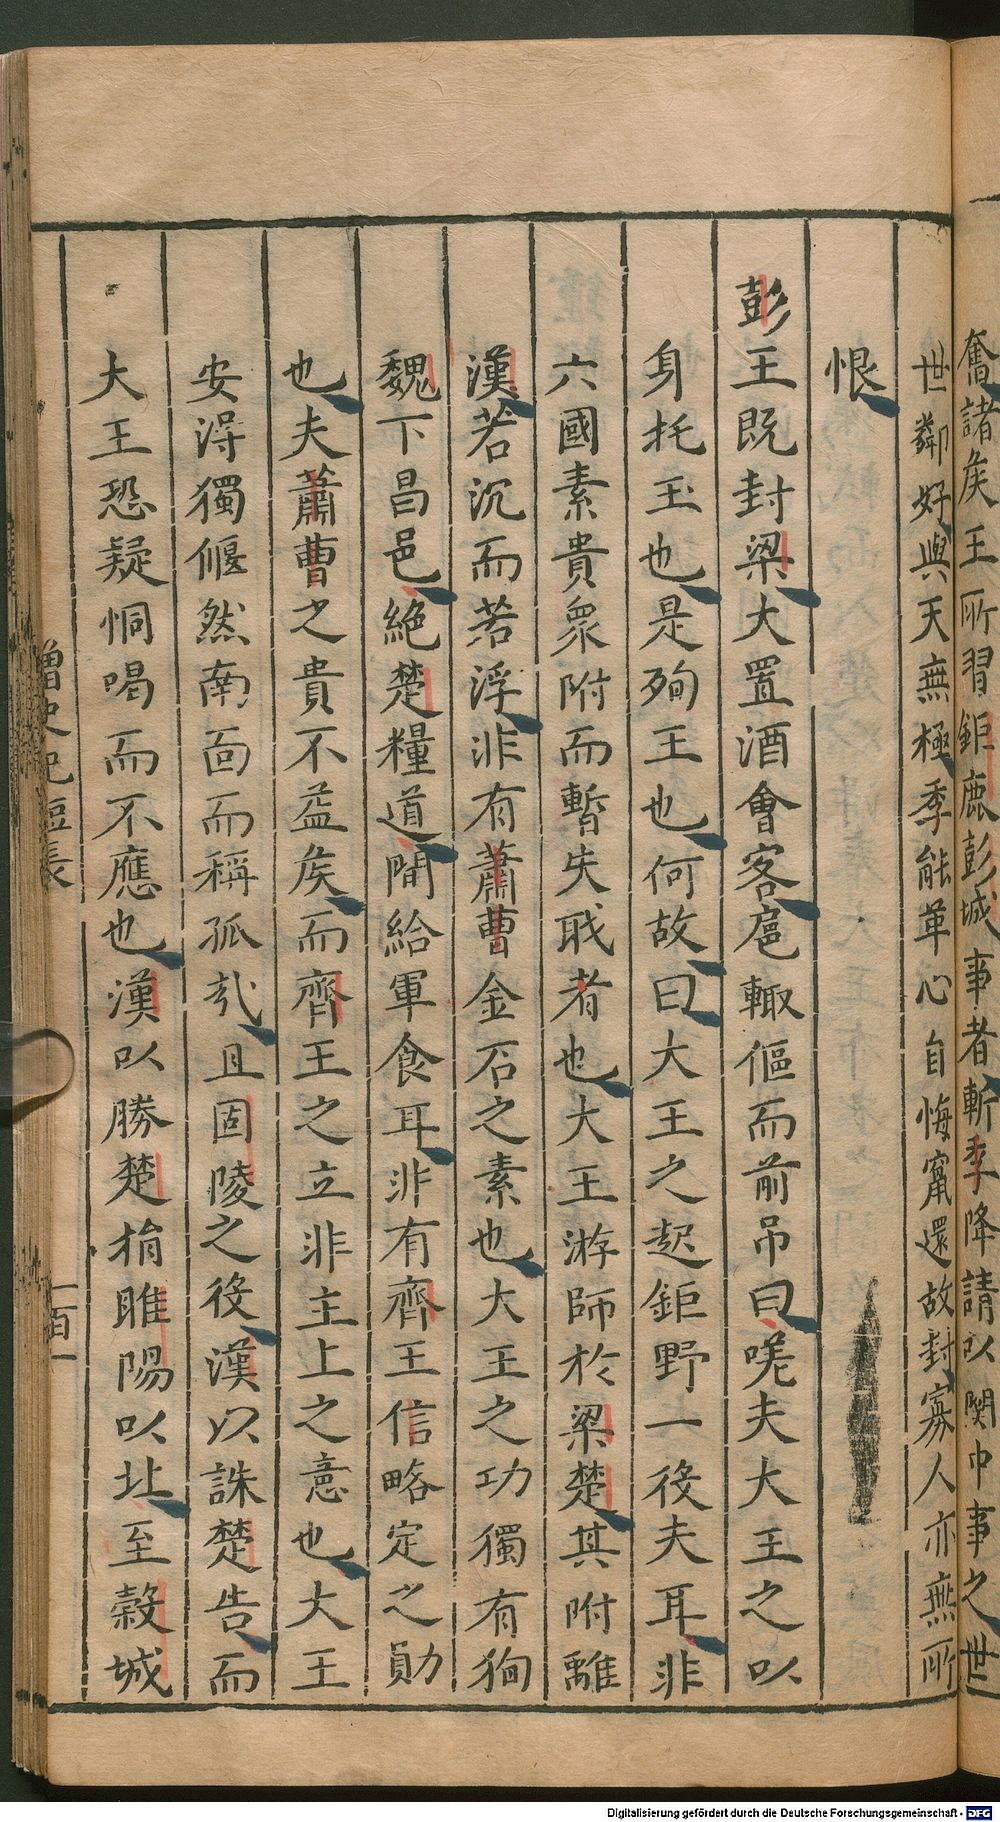 奮諸矦王所習鉅鹿彭城事者斬季降請以関中事之世
世鄰好與天無極季能革心自悔甯還故封寡人亦無所
恨
彭王既封梁大置酒會客扈輙傴而前吊曰嗟夫大王之以
身托玉也是殉王也何故曰大王之起鉅野一役夫耳非
六國素貴衆附而暫失職者也大王游師於梁楚其附離
漢若沉而若浮非有蕭曹金石之素也大王之功獨有狥
魏下昌邑絕楚糧道間給軍食耳非有齊王信略定之勛
也夫蕭曹之貴不益矦而齊王之立非主上之意也大王
安得獨偃然南面而稱孤㢤且固陵之役漢以誅楚告而
大王恐疑恫喝而不應也漢以勝楚捐睢陽以北至穀城
史記短長
一百一
Digitalisierung gefördert durch die Deutsche Forschungsgemeinschaft - DFG